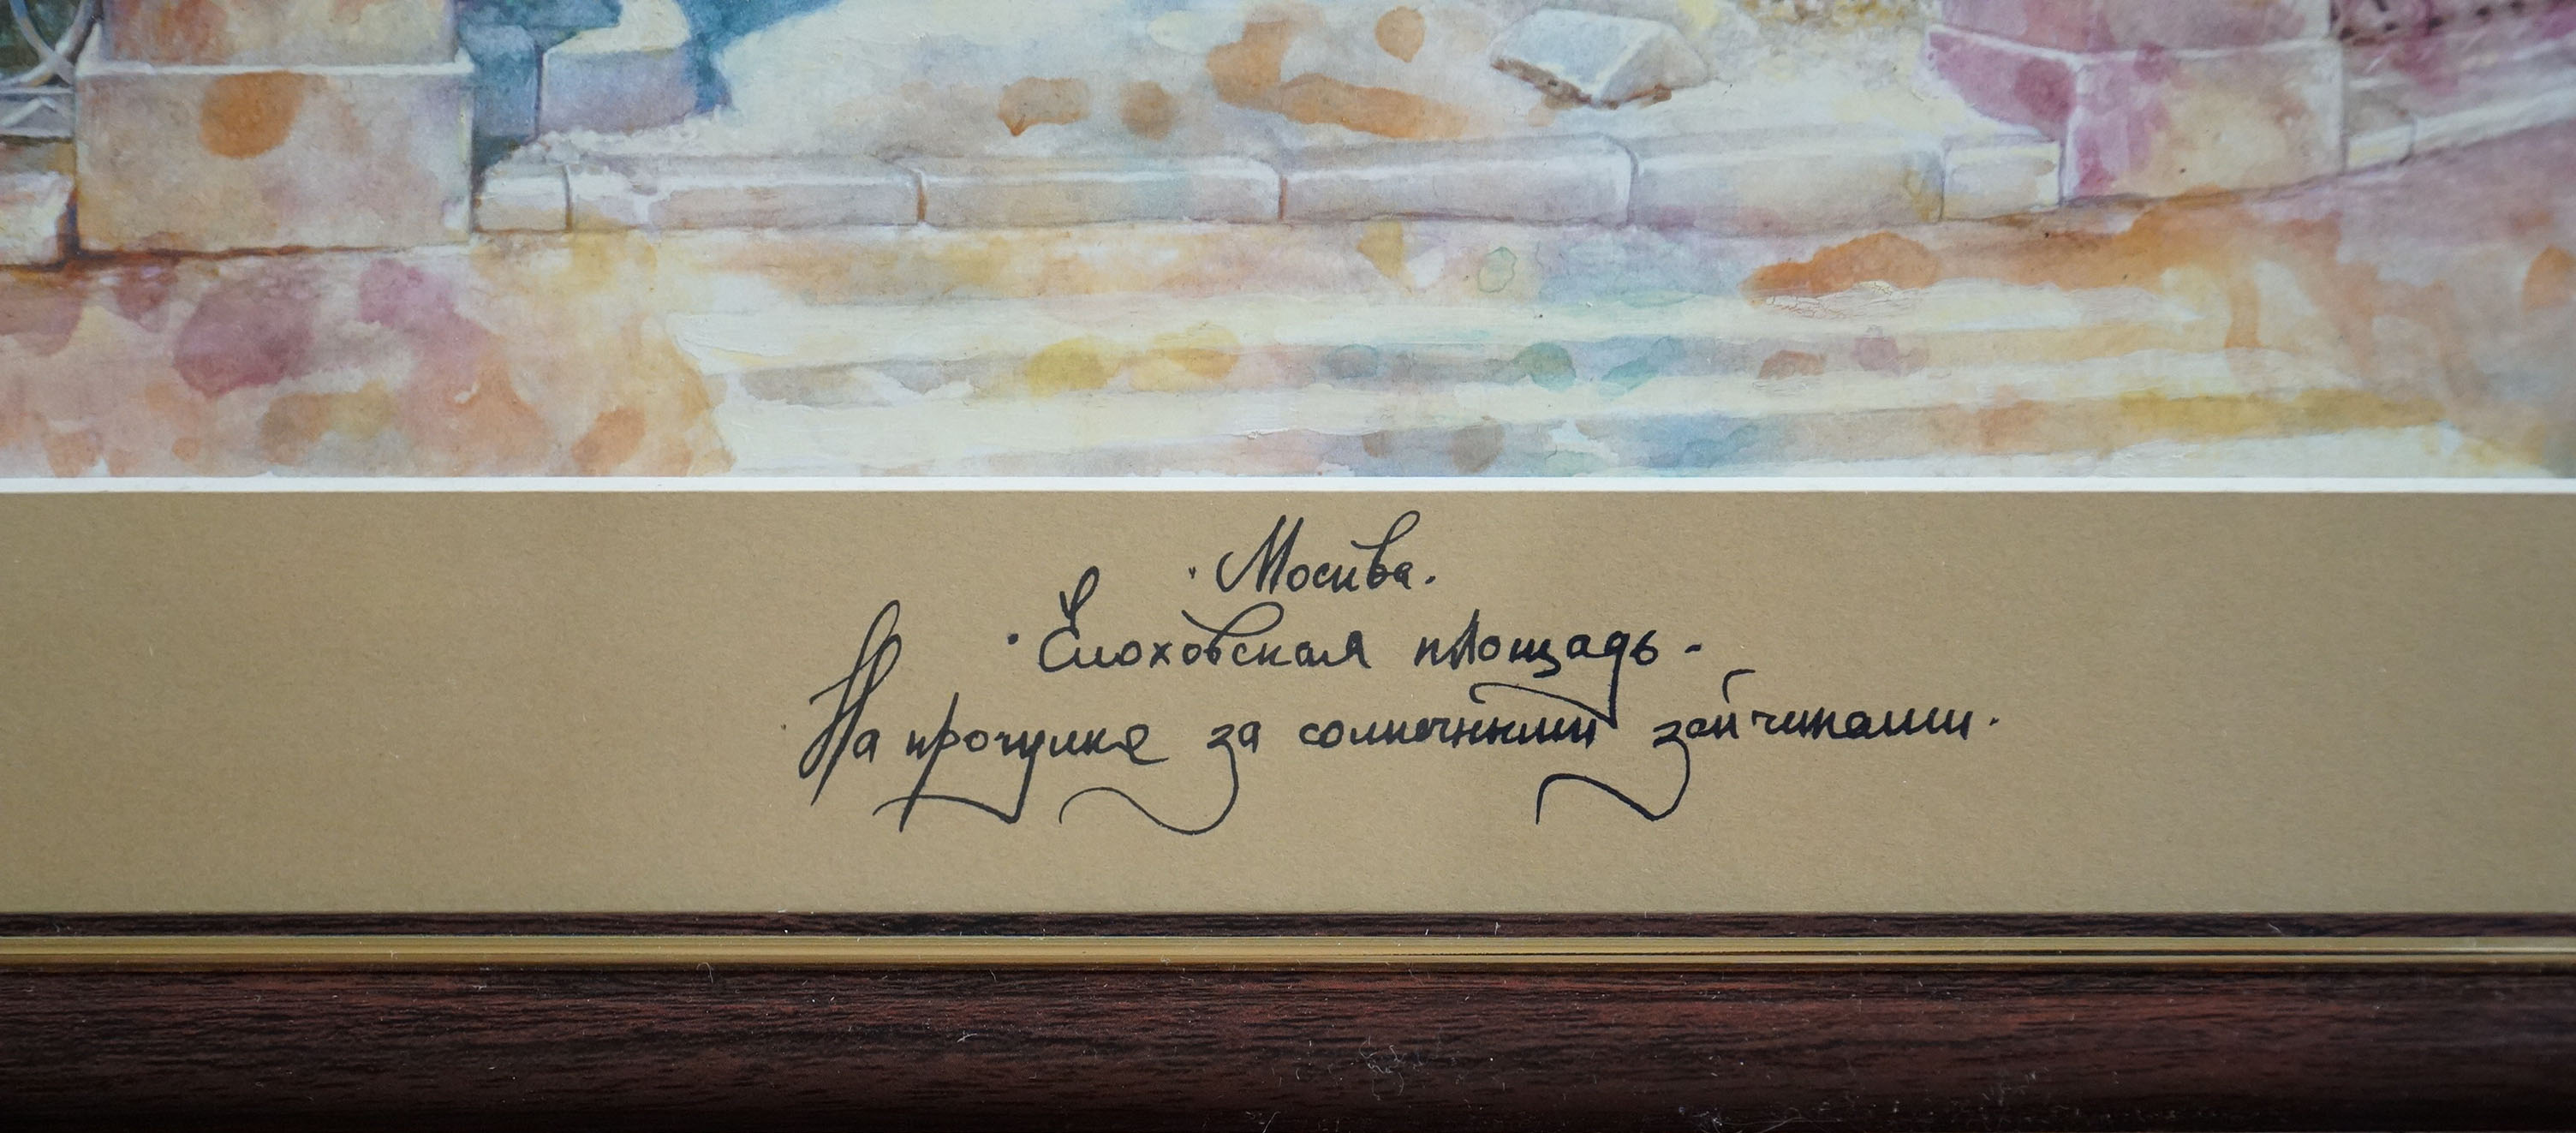 Москва.
Елоховская площадь.
На прогулке за солнечными зайчиками.